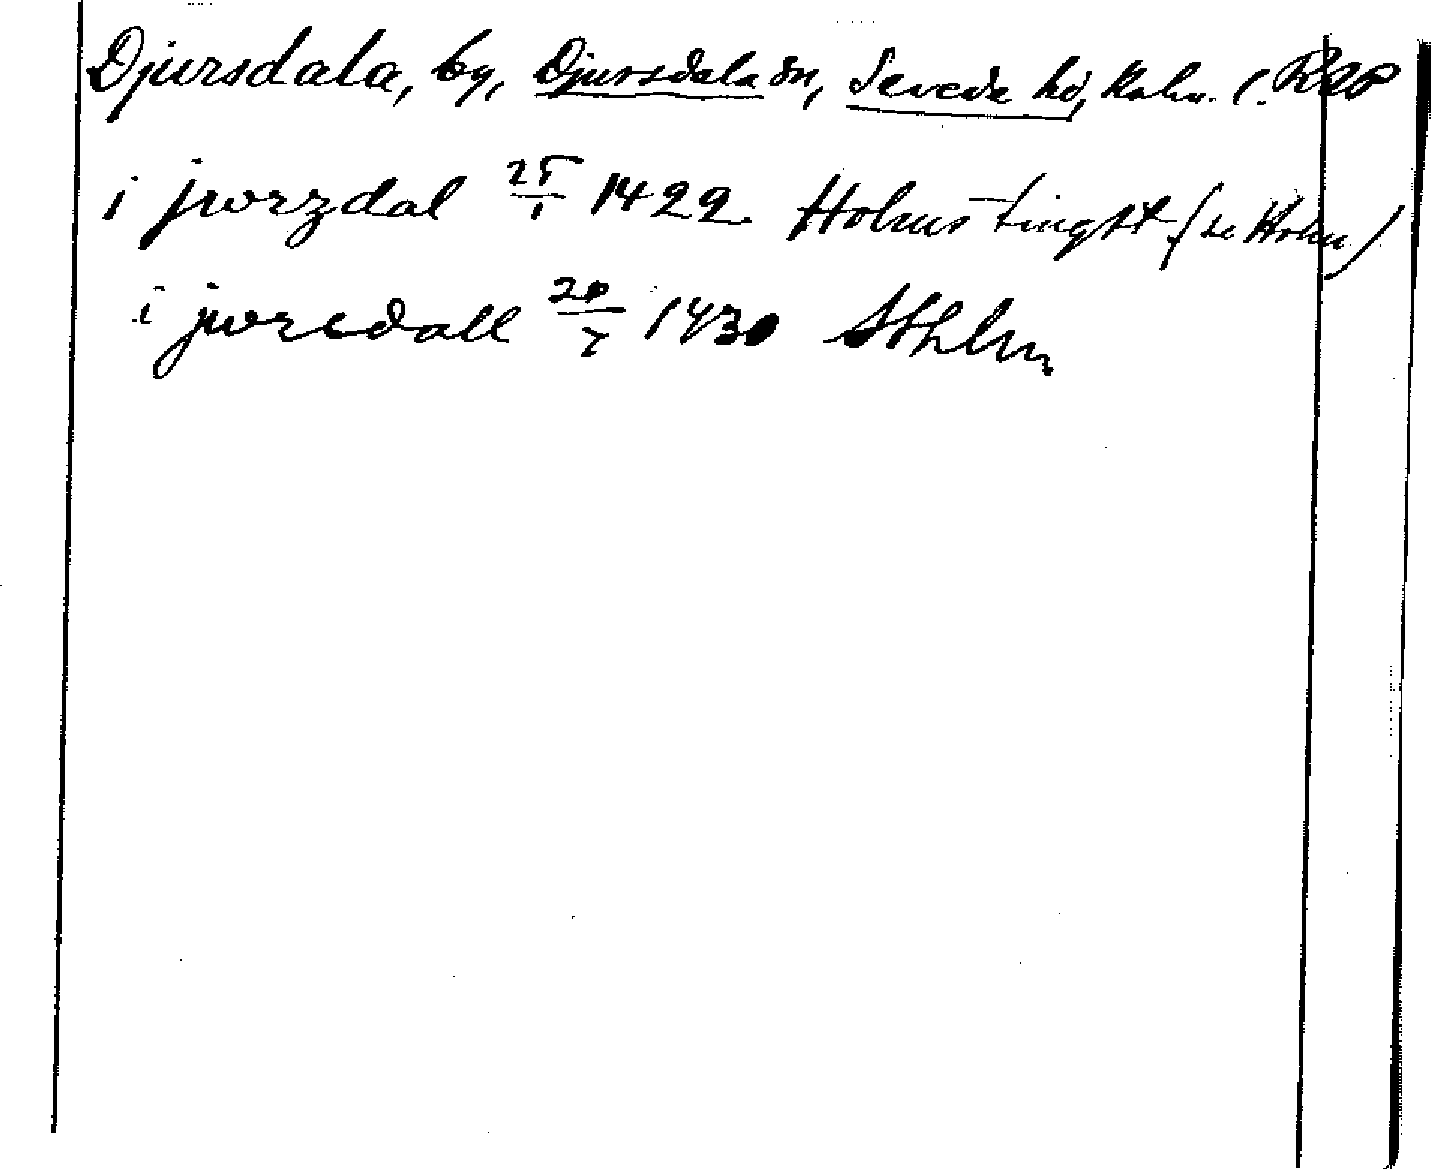 Djursdala, by, Djursdala sn, Sevede hd, Kalm. l. RAp
i jworzdal 25/1 1422 Holmus tingst. (se Holm)
i jworsdall 20/7 1430 Sthlm